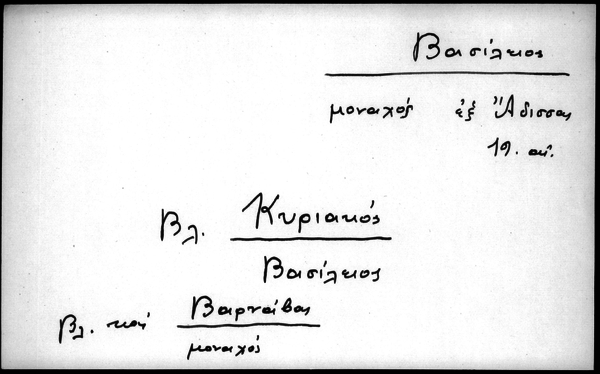 Βασίλειος
μοναχός ἐξ Ἄδισσας
19. αἰ.
Βλ. Κυριακός
Βασίλειος
Βλ. καί Βαρνάβας
μοναχός